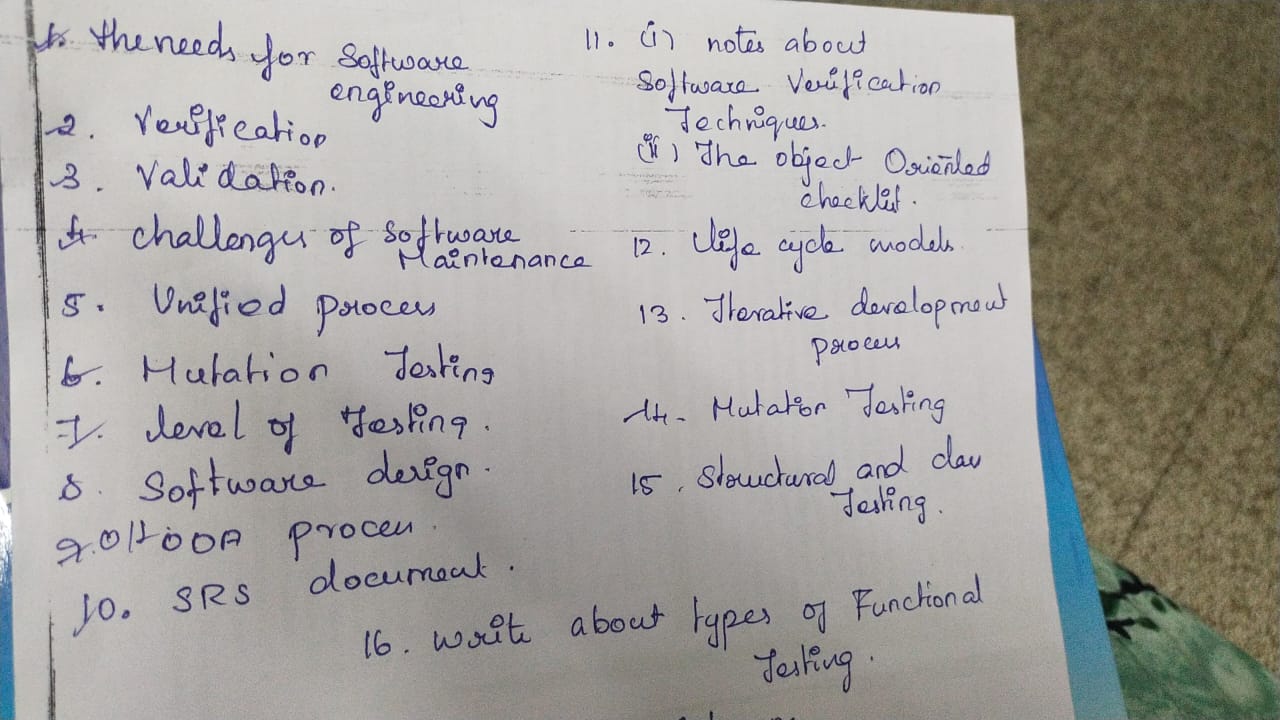 1. the needs for Software
engineering
2. Verification
3. Validation.
4. challenges of software
Maintenance
5. Unified process
6. Mutation Testing
7. level of Testing.
8. Software design.
9. OOA process.
10. SRS document.
11. (i) notes about
Software Verification
Techniques.
(ii) The object Oriented
checklist.
12. life cycle models.
13. Iterative development
process
14. Mutation Testing
15. Structural and class
Testing.
16. write about types of Functional
Testing.